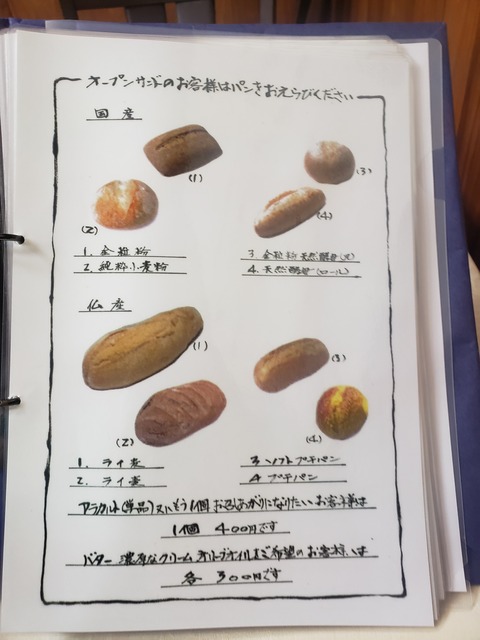 オープンサンドのお客様はパンをおえらびください
国産
(1)
(2)
(3)
(4)
1. 全粒粉
2. 純粋小麦粉
3 全粒粉 天然酵母(丸)
4. 天然酵母(ロール)
仏産
(1)
(2)
(3)
(4)
1. ライ麦
2. ライ麦
3 ソフトプチパン
4 プチパン
アラカルト(単品)又はもう1個 お召しあがりになりたいお客様は
1個 400円です
バター 濃厚なクリーム オリーブオイルをご希望のお客様は
各 300円です